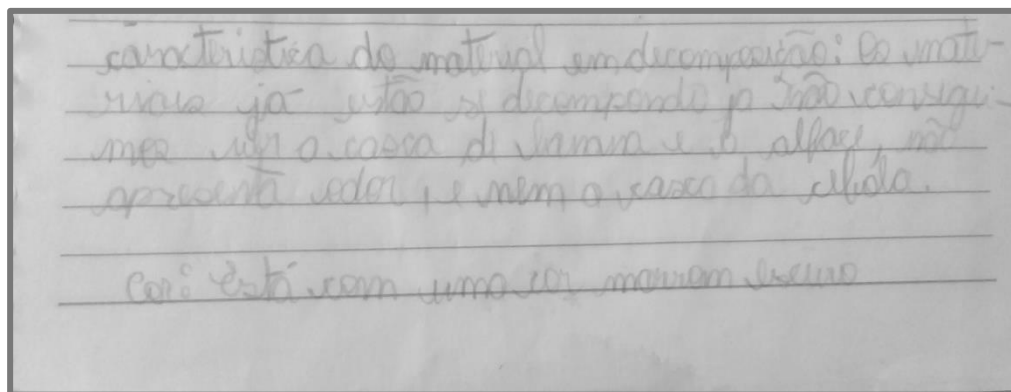 característica do material em decomposição: Os mate-
riais já estão se decompondo já não consegui-
mos ver a casca di banana e o alface, não
apresenta odor, e nem a casca da cebola.
Cor: Está com uma cor marrom escuro